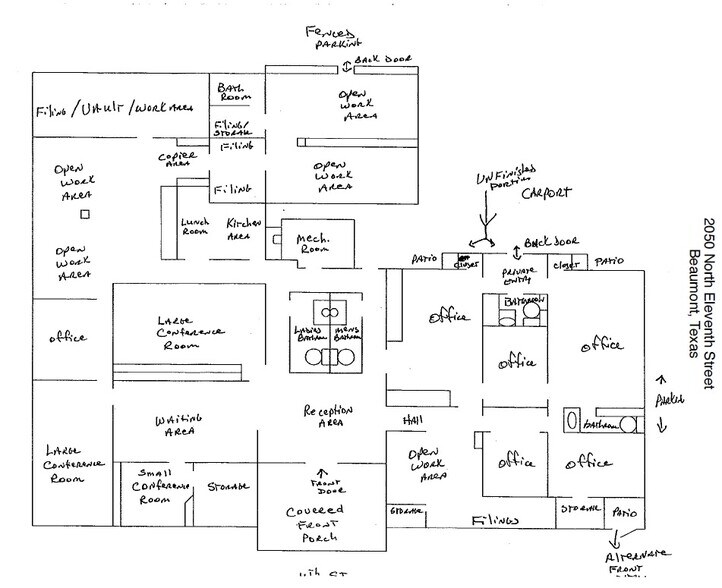 FENCED
PARKING
BACK DOOR
BATH
ROOM
OPEN
WORK
AREA
Filing / VAULT / WORK AREA
Filing/
STORAGE
Filing
COPIER
AREA
OPEN
WORK
AREA
OPEN
WORK
AREA
Filing
UNFinished
PORTION
CARPORT
LUNCH
ROOM
KITCHEN
AREA
MECH.
ROOM
OPEN
WORK
AREA
BACK DOOR
PATIO
CLOSET
PRIVATE
ENTRY
CLOSET
PATIO
2050 North Eleventh Street
Beaumont, Texas
BATHROOM
office
LARGE
CONFERENCE
ROOM
LADIES
BATHROOM
MENS
BATHROOM
office
office
office
PARKING
WAITING
AREA
RECEPTION
AREA
HALL
BATHROOM
LARGE
CONFERENCE
ROOM
OPEN
WORK
AREA
office
office
SMALL
CONFERENCE
ROOM
STORAGE
FRONT
DOOR
COVERED
FRONT
PORCH
STORAGE
Filings
STORAGE
PATIO
ALTERNATE
FRONT
11th ST